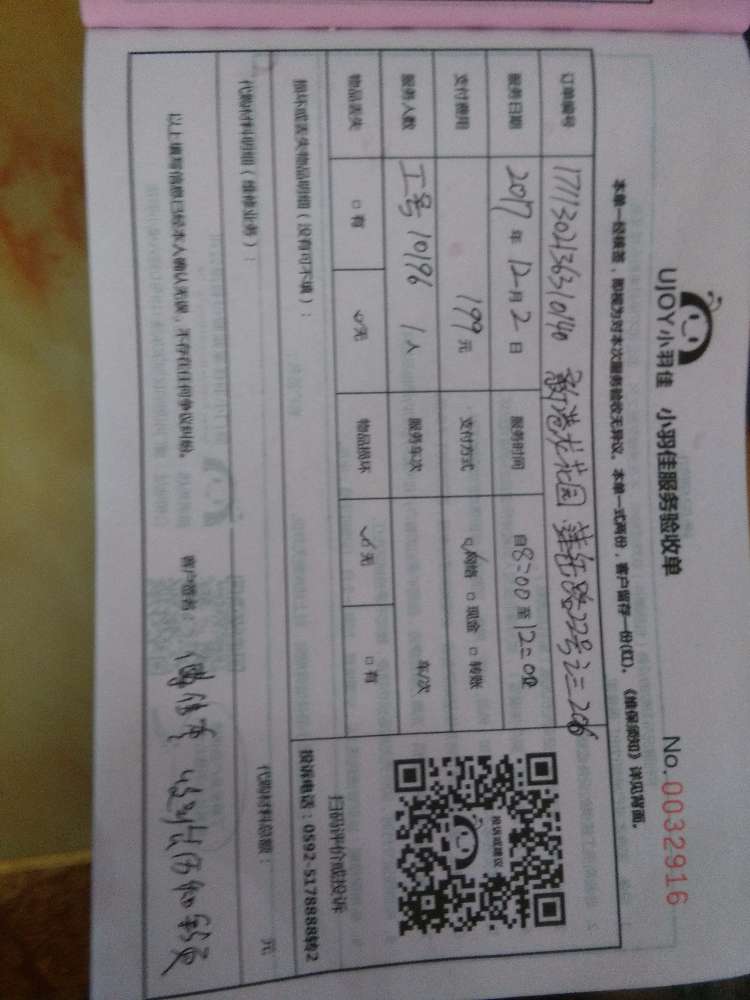 UJOY小羽佳 小羽佳服务验收单
No.0032916
本单一经续签，即视为对本次服务验收无异议。本单一式两份，客户留存一份(红)。《维保须知》详见背面。
订单编号 1711302136310140 新港龙花园 22号 206
服务日期 2017年12月2日 服务时间 自8:00至12:00
支付费用 199元 支付方式 ☑网络 □现金 □转账
服务人数 工号10196 1人 服务车次 车/次
物品丢失 □有 ☑无 物品损坏 ☑无 □有
投诉或建议
扫码评价或投诉
投诉电话：0592-5178888转2
损坏或丢失物品明细（没有可不填）：
代购材料明细（维修业务）：
代购材料总额： 元
以上填写信息已经本人确认无误，不存在任何争议纠纷。
客户签名：